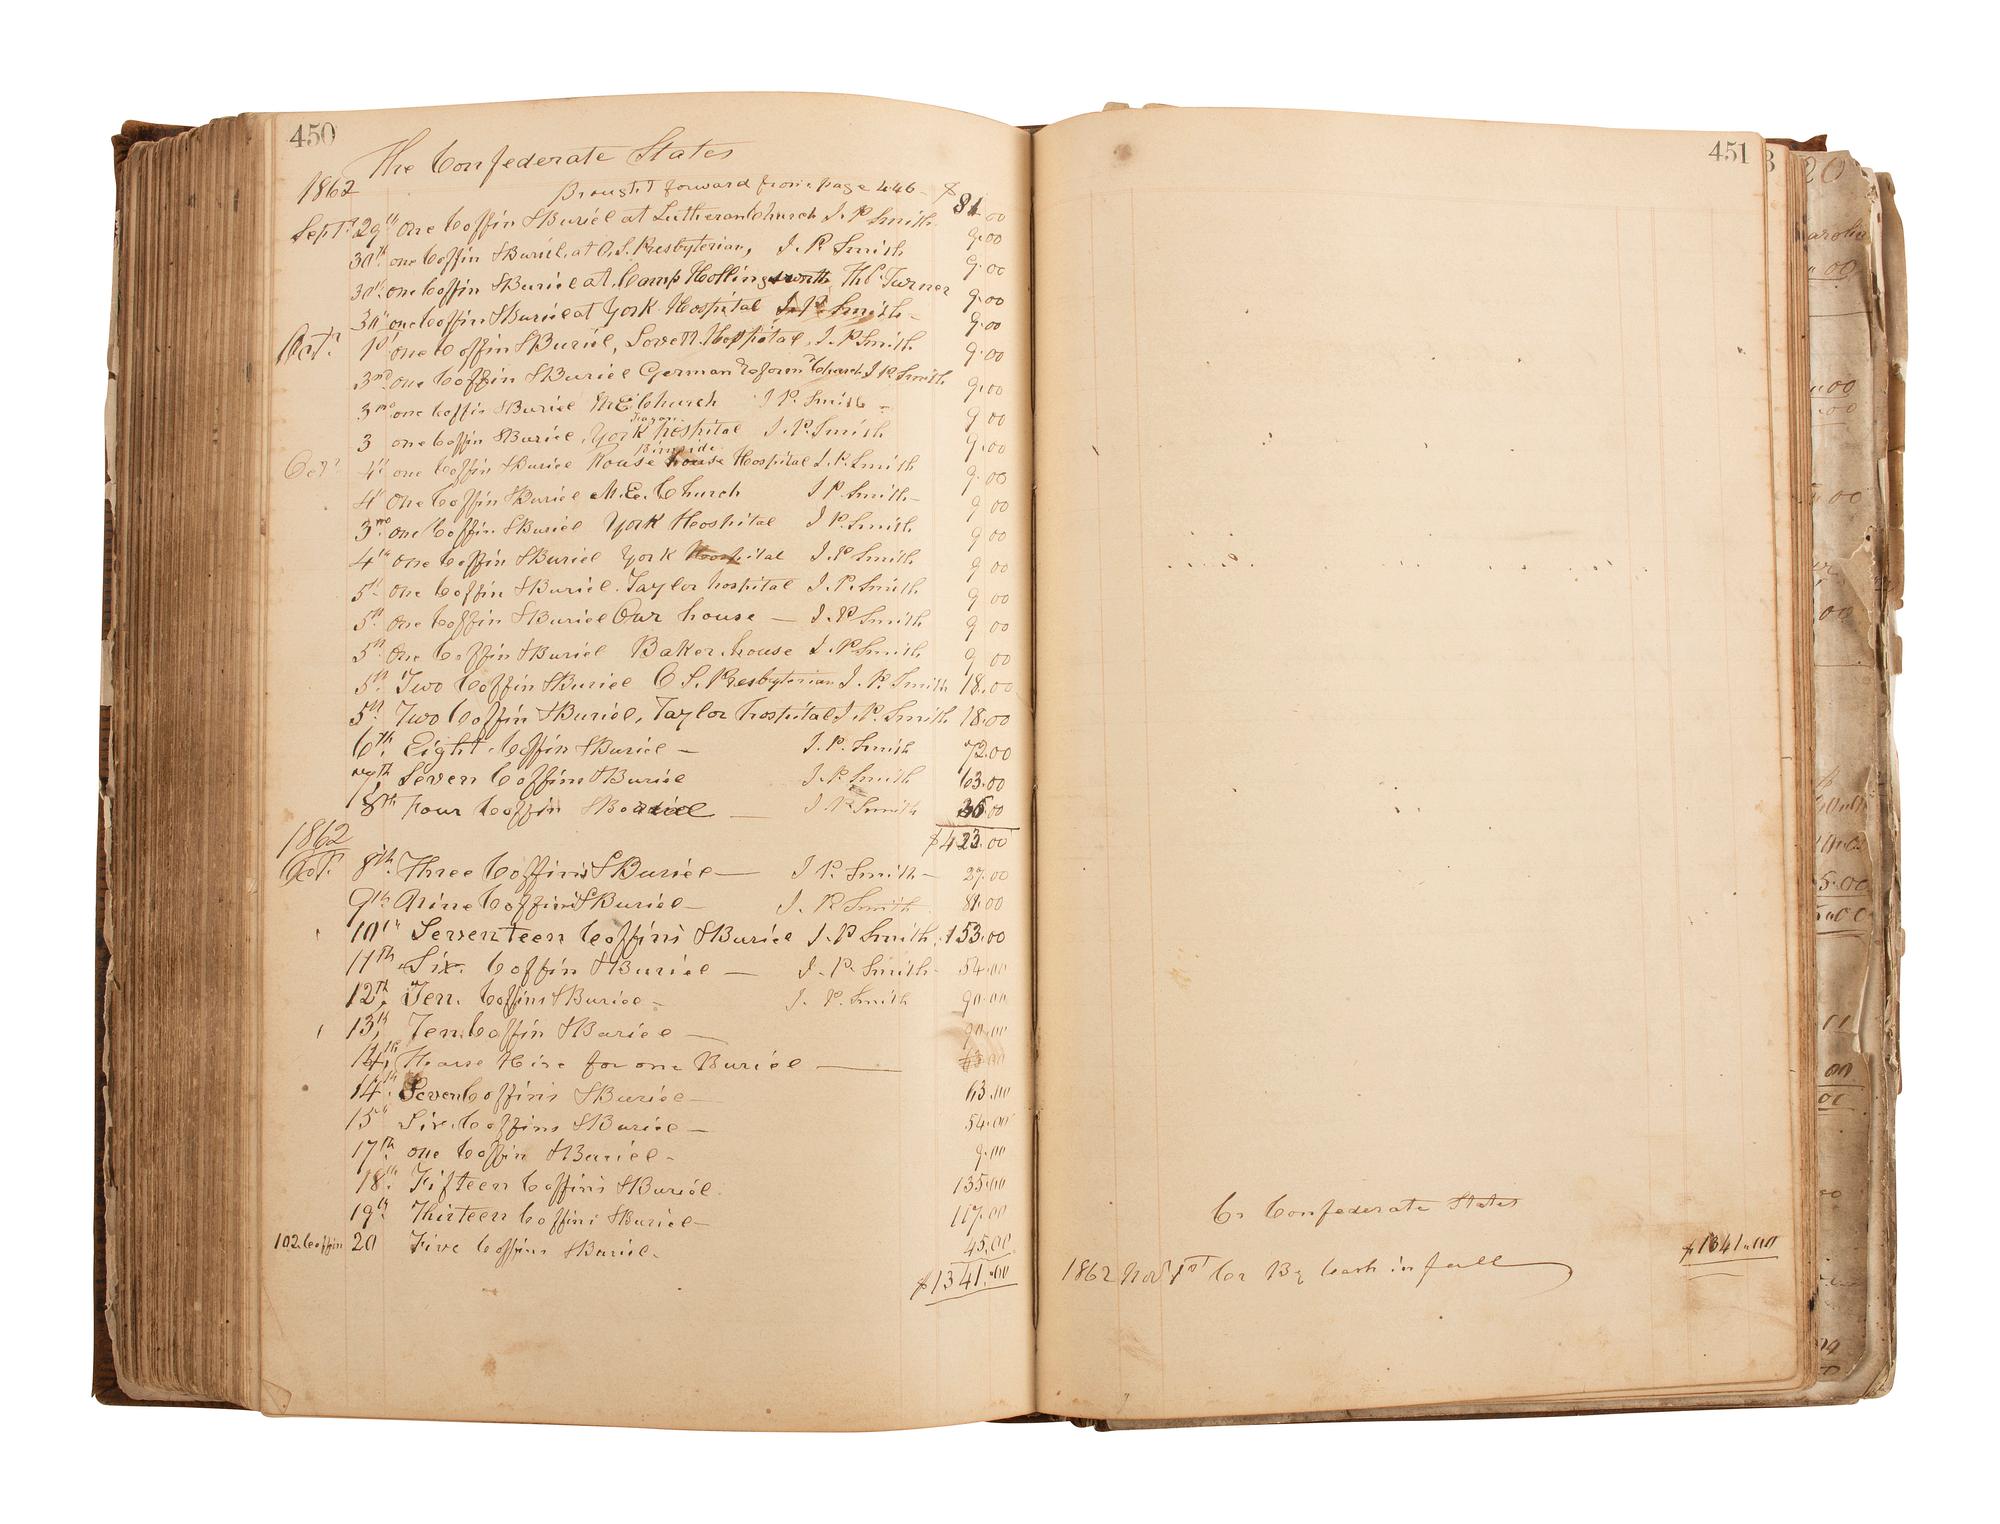 450
The Confederate States
1862 Brought forward from page 446 $ 81.00
Sept. 29th one Coffin & Buriel at Lutheran Church J. P. Smith 9.00
30th one Coffin & Buriel at O.S. Presbyterian, J. P. Smith 9.00
30th one Coffin & Buriel at Camp Hollingsworth Turner 9.00
30th one Coffin & Buriel at York Hospital J. P. Smith 9.00
Oct. 1st one Coffin & Buriel, Lovett Hospital, J. P. Smith 9.00
3rd one Coffin & Buriel German Reform Church J. P. Smith 9.00
3rd one Coffin & Buriel M E Church J. P. Smith 9.00
3 one Coffin & Buriel, York hospital J. P. Smith 9.00
Oct. 4th one Coffin & Buriel House house Hospital J. P. Smith 9.00
4th One Coffin & Buriel M.E. Church J. P. Smith 9 00
3rd one Coffin & Buriel York Hospital J. P. Smith 9 00
4th one Coffin & Buriel York Hospital J. P. Smith 9 00
5th One Coffin & Buriel. Taylor hospital J. P. Smith 9 00
5th One Coffin & Buriel Our house — J. P. Smith 9 00
5th One Coffin & Buriel Baker house J. P. Smith 9 00
5th Two Coffin & Buriel O S. Presbyterian J. P. Smith 18.00
5th Two Coffin & Buriel, Taylor hospital J. P. Smith 18.00
6th Eight Coffin & Buriel — J. P. Smith 72.00
7th Seven Coffins & Buriel J. P. Smith 63.00
8th Four Coffin & Buriel — J. P. Smith 36.00
1862 $423.00
Oct. 8th Three Coffins & Buriel — J. P. Smith 27.00
9th Nine Coffins & Buriel — J. P. Smith 81.00
10th Seventeen Coffins & Buriel J. P. Smith 153.00
11th Six Coffin & Buriel — J. P. Smith 54.00
12th Ten Coffins & Buriel — J. P. Smith 90.00
13th Ten Coffin & Buriel — 90.00
14th Hearse Hire for one Buriel —
14th Seven Coffins & Buriel — 63.00
15th Six Coffins & Buriel — 54.00
17th one Coffin & Buriel — 9.00
18th Fifteen Coffins & Buriel 135.00
19th Thirteen Coffins & Buriel — 117.00
102 Coffin 20 Five Coffins & Buriel — 45.00
$1341.00
451
Cr Confederate States
1862 Nov 1st Cr By Cash in full $1341.00